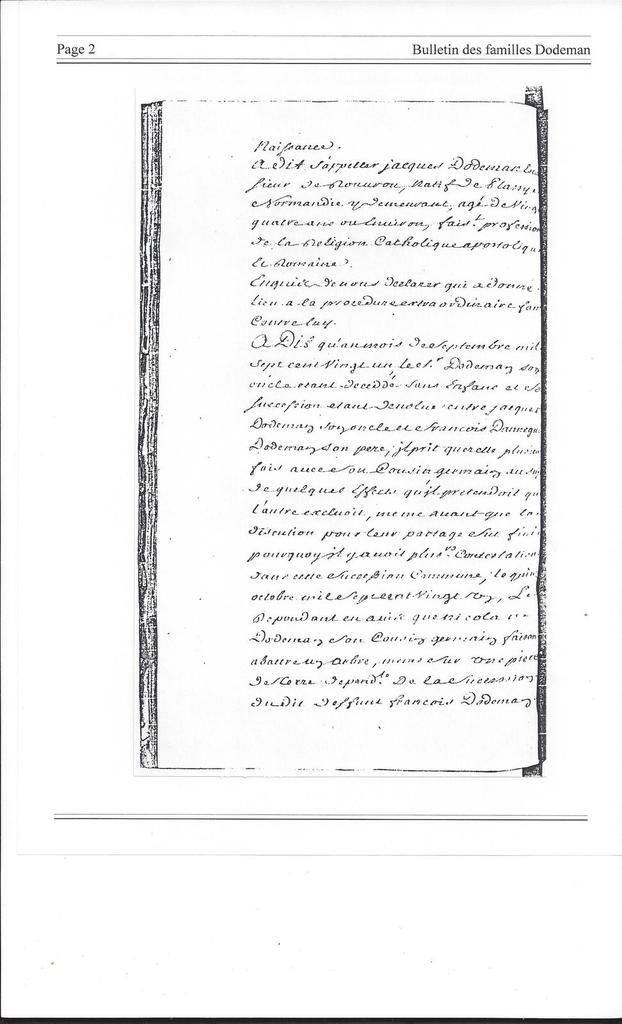 Page 2
Bulletin des familles Dodeman
Naissance.
A dit s'appeller jacques Dodeman
sieur de natif de
Normandie y demeurant, agé de Vin
quatre ans ou Environ, fais.t profession
de la Religion Catholique apostoliqu
et Romaine.
Enquis de nous declarer qui a donné
lieu a la procedure extraordinaire
Contre luy.
A Dit qu'au mois de Septembre mil
Sept cent Vingt un, le S.r Dodeman son
oncle etant decedé sans Enfans et
succession etant devolue entre jacques
Dodeman son oncle et francois
Dodeman son pere, jl prit querelle
fois avec son Cousin germain au
de quelques Effets qu'jl pretendoit qu
l'autre exclusit, meme avant que la
discution pour leur partage fut fini
pourquoy jl y avoit plus.rs Contestation
dans cette succession Commune, le
octobre mil sept cent Vingt
Repondant eu avis que nicola
Dodeman son Cousin germain faison
abattre un arbre, meme sur une piece
de terre depend.te De la Succession
du dit deffunt francois Dodeman